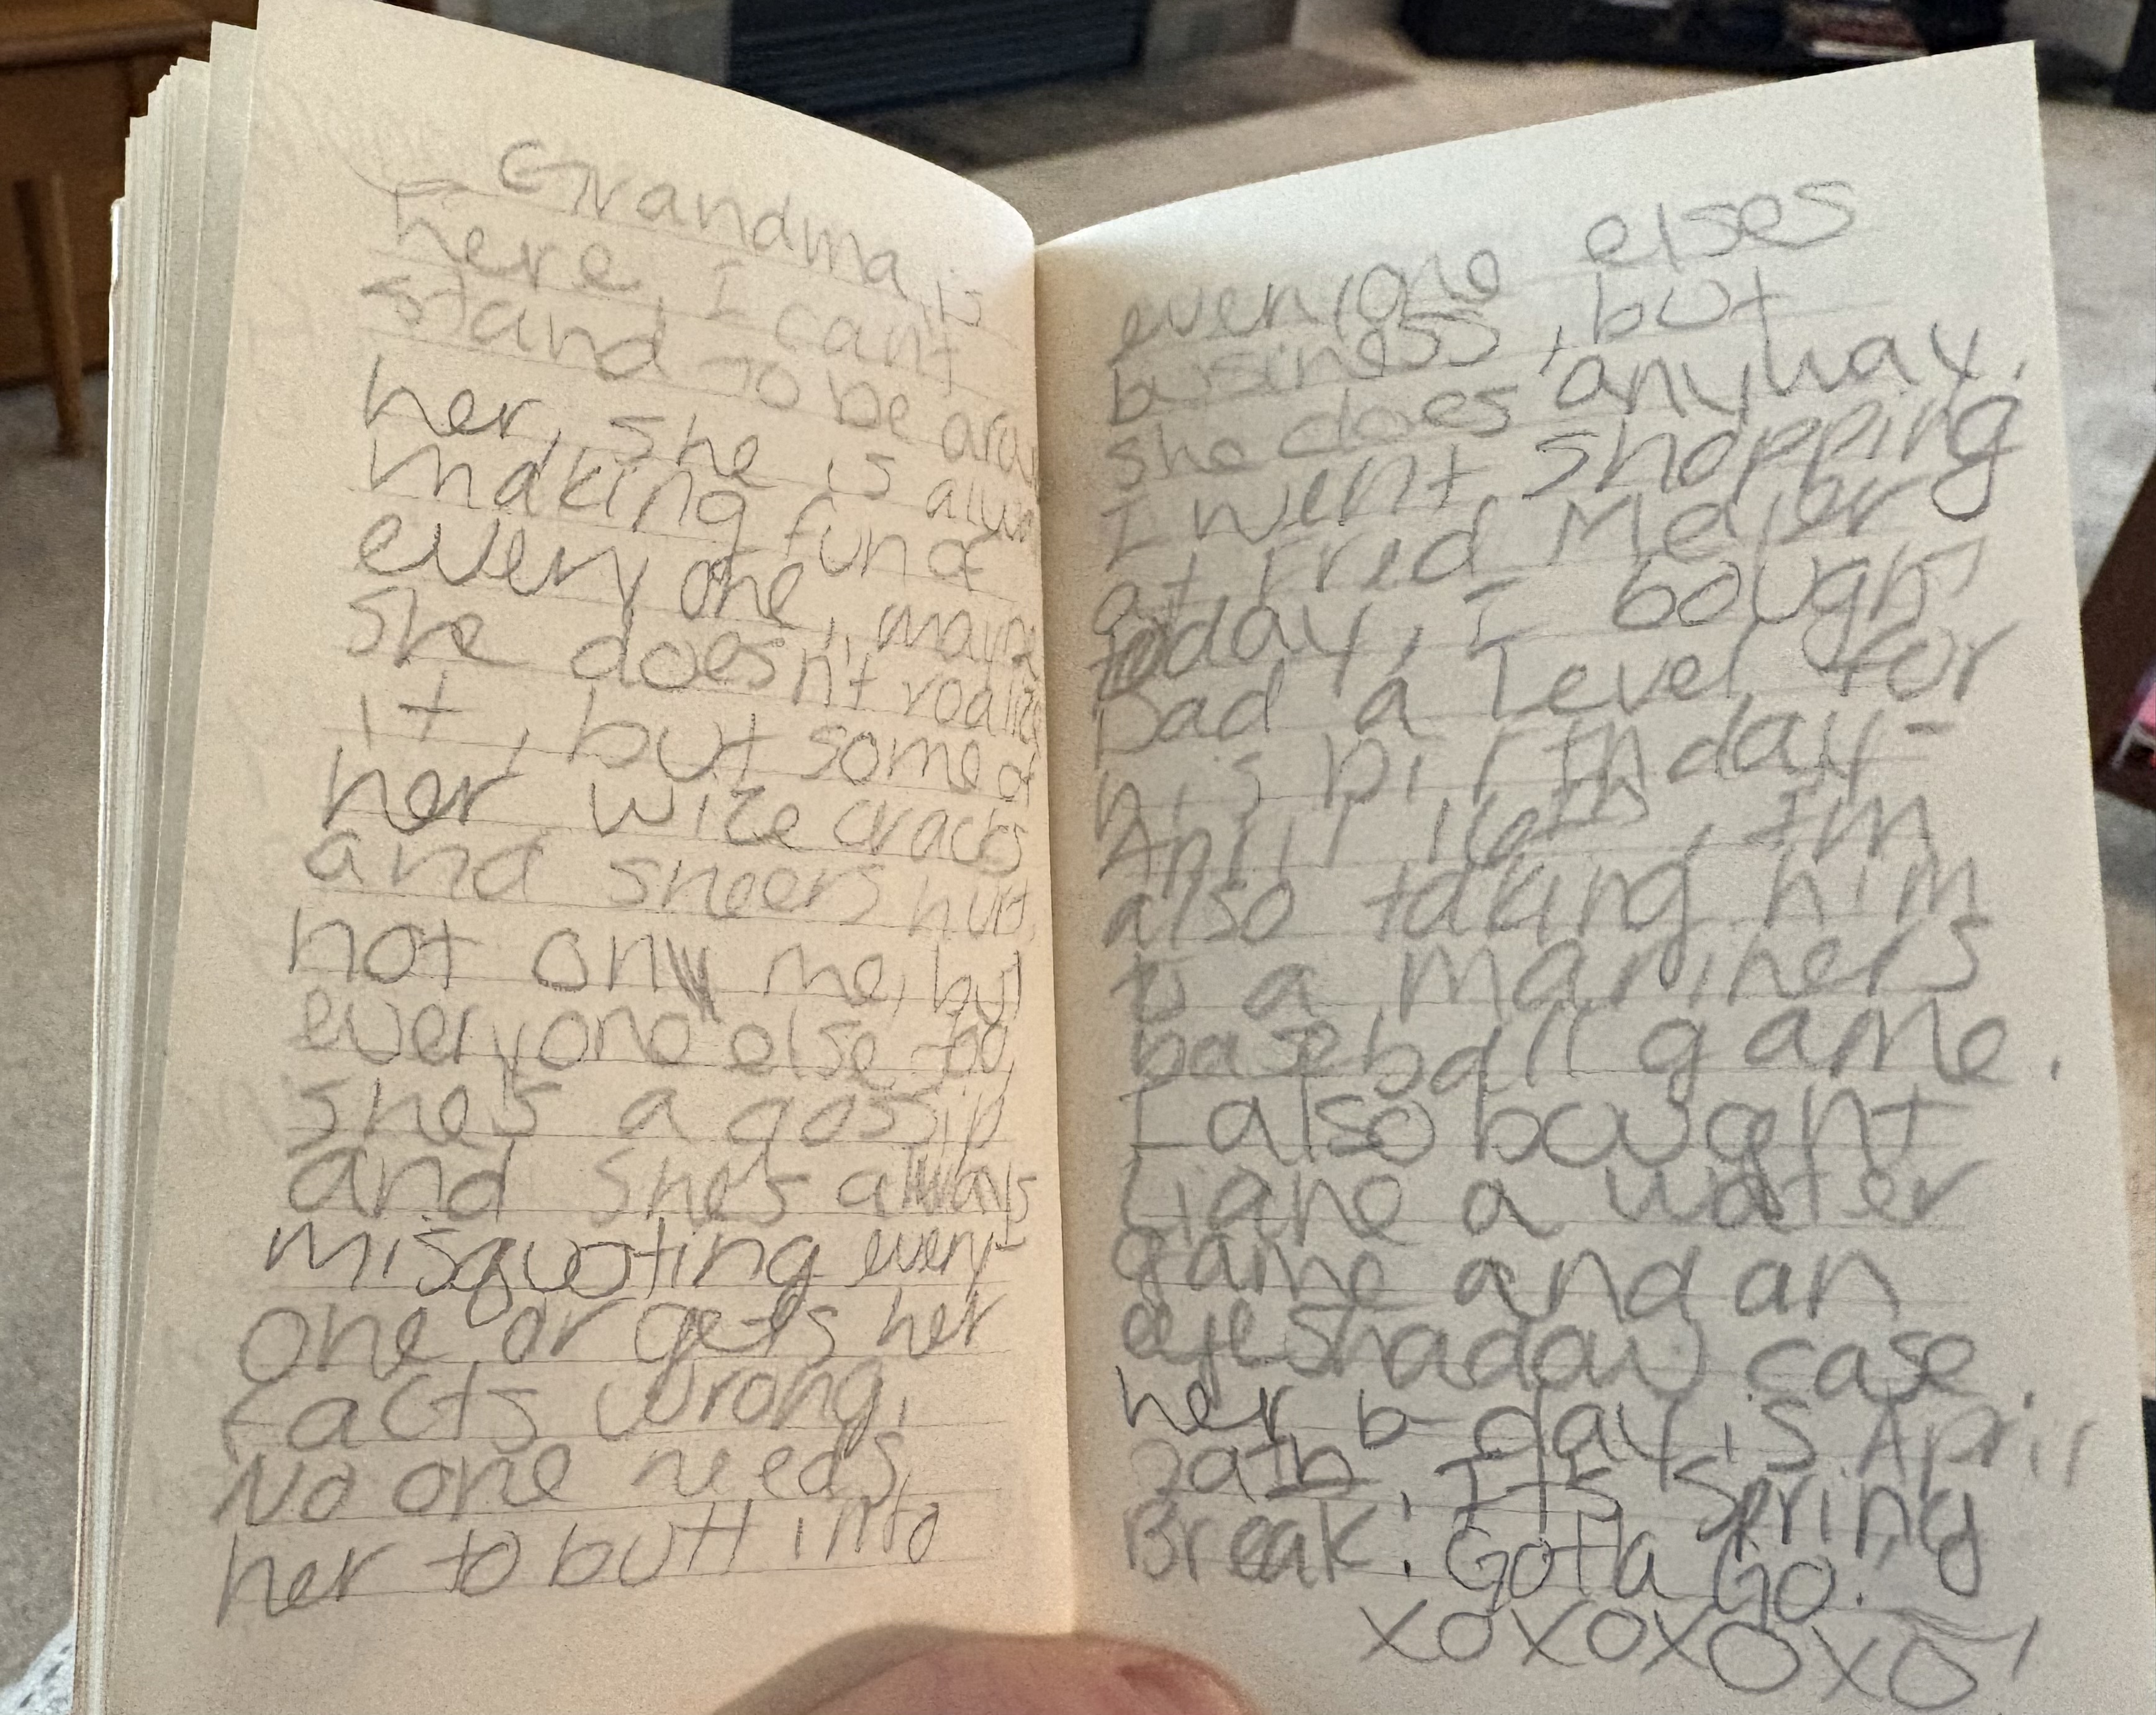 Grandma is
here, I can't
stand to be arou
her, she is alwa
making fun of
everyone, maybe
she doesn't realize
it, but some of
her wize cracks
and sneers hurt,
not only me, but
everyone else too,
she's a gossip
and she's always
misquoting every-
one or gets her
facts wrong,
No one needs
her to butt into
everyone elses
business, but
she does anyway.
I went shopping
at Fred Meier
today, I bought
Dad a level for
his birthday-
April 16th, I'm
also taking him
to a mariners
baseball game.
I also bought
Liane a water
game and an
eyeshadow case.
her b-day is April
. It's Spring
Break! Gotta Go!
xoxoxoxo!